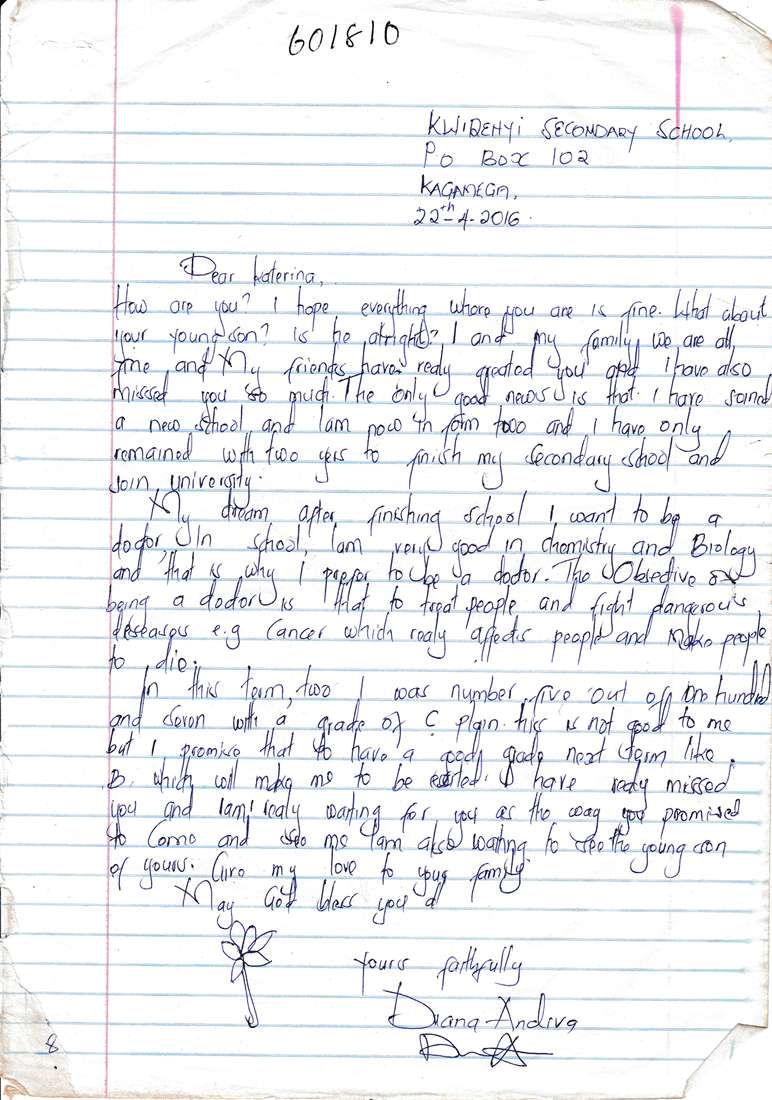 601810
KWIDENYI SECONDARY SCHOOL,
PO BOX 102
KAGAMEGA,
22th-4-2016.
Dear Katerina,
How are you? I hope everything where you are is fine. What about
your young son? is he alright? I and my family, we are all
fine and My friends have realy greated you and I have also
missed you so much. The only good news is that I have joined
a new school and Iam now in form two and I have only
remained with two yers to finish my Secondary school and
Join university.
My dream after finishing school I want to be a
doctor, In school, Iam very good in chemistry and Biology
and that is why I prefer to be a doctor. The Objective of
being a doctor is that to treat people and fight dangerous
deseases e.g Cancer which realy affects people and Make people
to die.
In this term, two I was number five out off One hundred
and seven with a grade of C plain. this is not good to me
but I promise that to have a good grade next term like
B. which will make me to be I have realy missed
you and Iam realy waiting for you as the way you promised
to Come and see me Iam also waiting to see the young son
of yours. Give my love to your family.
May God bless you all
yours faithfully
Diana Andiva
8